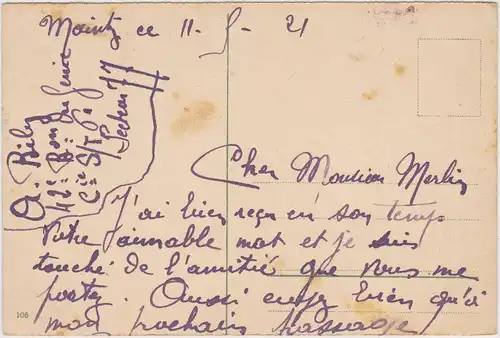 Maintz ce 11-5-21
Cher Monsieur Merlin
J'ai bien reçu en son temps
Votre aimable mot et je suis
touché de l'amitié que vous me
portez. Aussi croyez bien qu'à
mon prochain passage
A. Rily
11e Bon du Génie
Cie S/T 61
Secteur 77
106